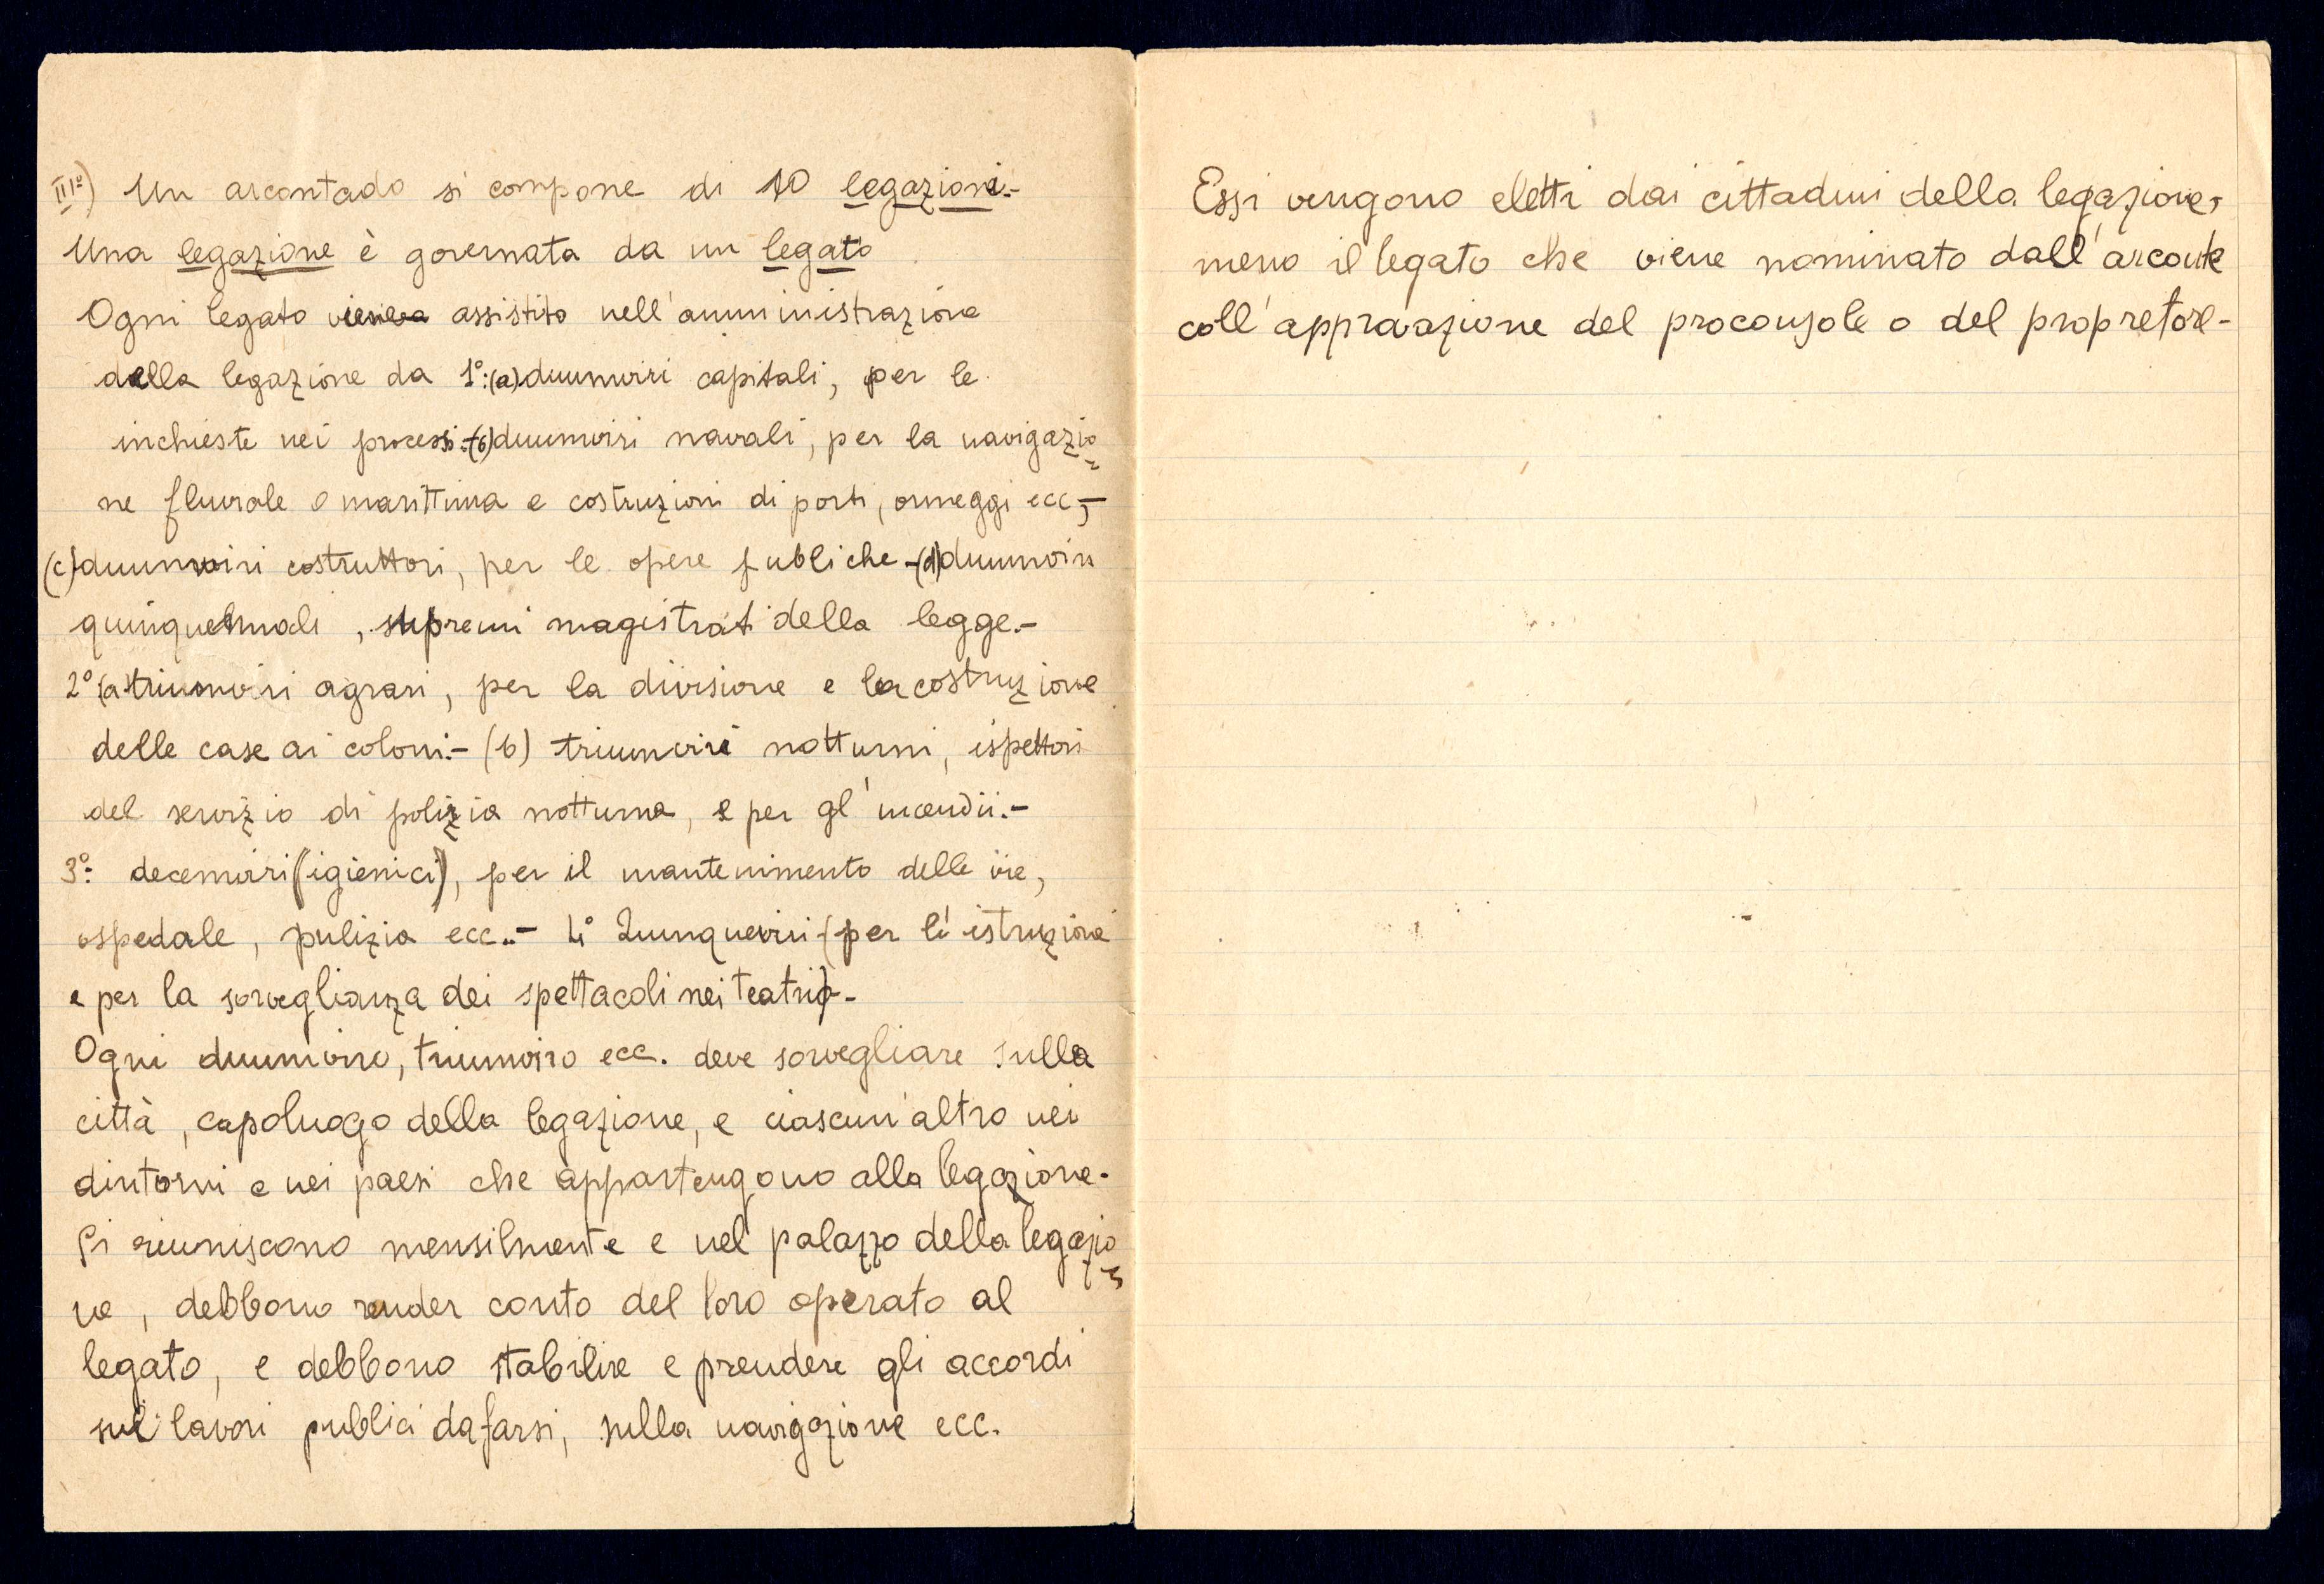 III°) Un arcontado si compone di 10 legazioni.-
Una legazione è governata da un legato
Ogni legato viene assistito nell'amministrazione
della legazione da 1°:(a) duumviri capitali, per le
inchieste nei processi:-(b) duumviri navali, per la navigazio
ne fluviale o marittima e costruzioni di porti, ormeggi ecc,-
(c) duumviri costruttori, per le opere pubbliche-(d) duumviri
quinquennali, supremi magistrati della legge.-
2° (a) triumviri agrari, per la divisione e la costruzione
delle case ai coloni.- (b) triumviri notturni, ispettori
del servizio di polizia notturna, e per gl'incendii.-
3°: decemviri (igienici), per il mantenimento delle vie,
ospedale, pulizia ecc..- 4° Quinqueviri (per l'istruzione
e per la sorveglianza dei spettacoli nei teatri)-
Ogni duumviro, triumviro ecc. deve sorvegliare sulla
città, capoluogo della legazione, e ciascun'altro nei
dintorni e nei paesi che appartengono alla legazione.
Si riuniscono mensilmente e nel palazzo della legazio
ne, debbono render conto del loro operato al
legato, e debbono stabilire e prendere gli accordi
sui lavori publici da farsi, sulla navigazione ecc.
Essi vengono eletti dai cittadini della legazione,
meno il legato che viene nominato dall'arconte
coll'appravazione del proconsole o del propretore-